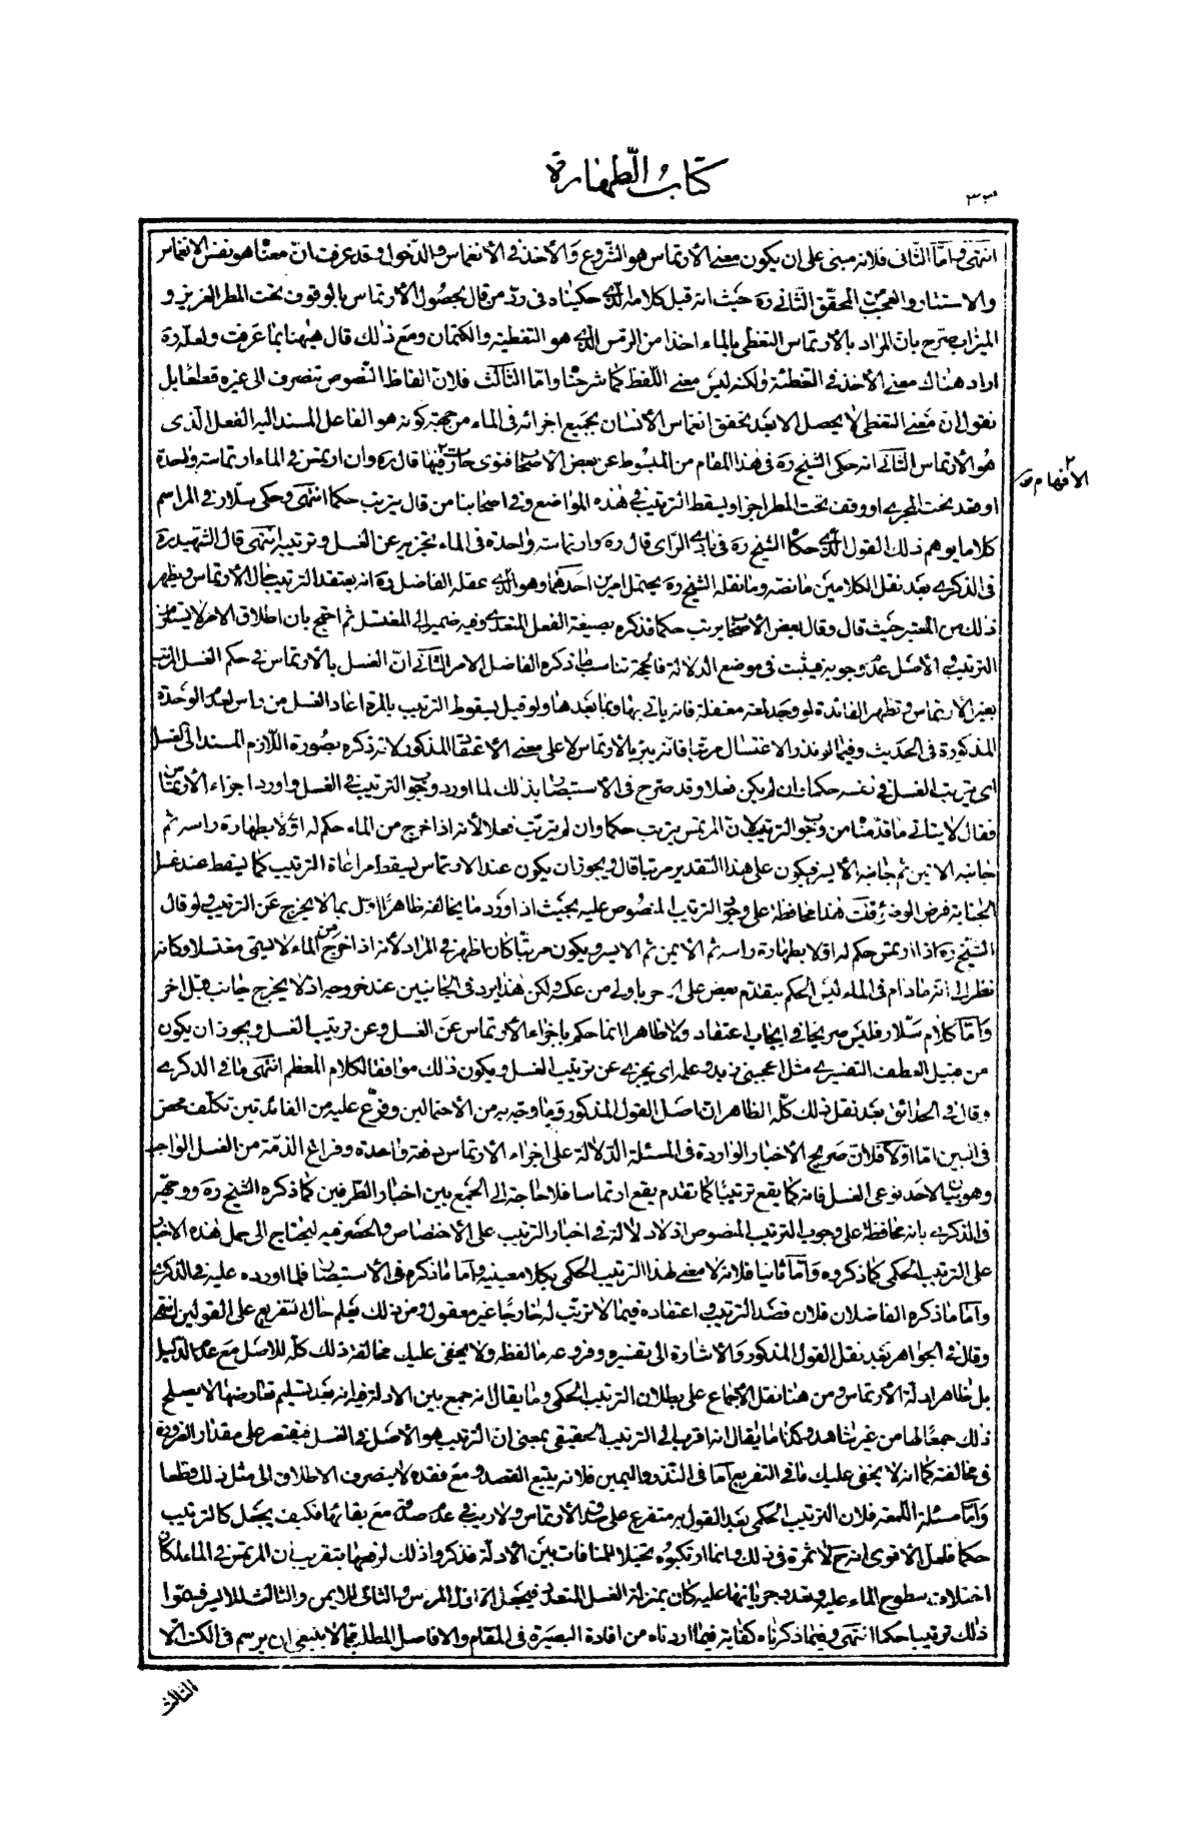 كتاب الطهارة
انتهى وامّا الثّانى فلانه مبنى على ان يكون معنى الأرتماس هو الشّروع وَالأخذ فى الأنغماس والدّخول وقد عرفت انّ معناه هو نفس الانغماس
والاستتار والعجب من المحقّق الثّانى ره حيث انه قبل كلامه الّذى حكيناه فى ردّ من قال بحصُول الأرتماس بالوقوف تحت المطر الغزير و
الميزاب صرّح بانّ المراد بالأرتماس التغطى بالماء اخذا من الرّمس الّذى هو التغطية والكتمان ومع ذلك قال هيهنا بما عَرفت ولعلّه ره
اراد هناك معنى الأخذ فى التغطئة ولكنه ليسَ معنى اللّفظ كما شرحنا وامّا الثّالث فلانّ الفاظ النّصوص تنصرف الى غيره قطعا بل
نقول ان مَعنى التغطى لا يحصل الا بعَد تحقق انغماس الأنسَان بجميع اجزائه فى الماء من جهة كونه هو الفاعل المسند اليه الفعل الّذى
هُو الأرتماس الثّانى انه حكى الشّيخ ره فى هٰذا المقام من المبسُوط عن بعض الأصحٰاب فتوى حارت فيها قال ره وان ارتمس فى الماء ارتماسة وٰاحدة
الافهام صح
او قعد تحت المجرى او وقف تحت المطر اجزاه ويسقط الترتيب فى هٰذه الموٰاضع وفى اصحابنا من قال يترتب حكما انتهى وحكى سلّار فى المراسم
كلاما يوهم ذلك القول الّذى حكاه الشّيخ ره فى بادى الرّاى قال ره وارتماسة وٰاحدة فى الماء تجزيه عن الغسل وترتيبه انتهى قال الشّهيد ره
فى الذكرى بعَد نقل الكلامين ما نصّه وما نقله الشّيخ ره يحتمل امرين احدهما وهو الّذى عقله الفاضل ره انه يعتقد الترتيب حٰال الأرتماس ويظهر
ذلك من المعتبر حيث قال وقال بعض الأصحٰاب يرتب حكما فذكره بصيغة الفعل المتعدى وفيه ضمير الى المغتسل ثم احتج بان اطلاق الامر لا يستلزم
الترتيب والأصل عدم وجوبه فيثبت فى موضع الدلالة فالحجة تناسب ما ذكره الفاضل الامر الثّانى انّ الغسل بالأرتماس فى حكم الغسل المرتب
بغير الأرتماس وتظهر الفائدة لو وجد لمعة مغفلة فانه ياتى بها وبما بَعدها ولو قيل بسقوط الترتيب بالمرة اعٰاد الغسل من راس لعدم الوحدة
المذكورة فى الحديث وفيما لو نذر الاغتسال مرتبا فانّه يبرّ بالأرتماس لا على معنى الأعتقاد المذكور لانه ذكره بصُورة اللّازم المسند الى الغسل
اى يترتب الغسل فى نفسه حكما وان لم يكن فعلا وقد صرّح فى الأستبصٰار بذلك لما اورد وجُوب الترتيب فى الغسل واورد اجزاء الأرتماس
فقال لا ينافى ما قدّمناه من وجُوب الترتيب لانّ المرتمس يترتب حكما وان لم يترتّب فعلا لأنه اذا خرج من الماء حكم له اوّلا بطهارة راسه ثم
جانبه الايمن ثم جانبه الأيسر فيكون على هٰذا التقدير مرتبا قال ويجوز ان يكون عند الارتماس يسقط مراعٰاة الترتيب كما يسقط عند غسل
الجنابة فرض الوضوء قلت هٰذا محافظة على وجُوب الترتيب المنصُوص عليه بحيث اذا ورد ما يخالفه ظاهرا اوّل بما لا يخرج عَن الترتيب ولو قال
الشّيخ ره اذا ارتمس حكم له اوّلا بطهٰارة راسه ثم الايمن ثم الايسر ويكون مرتّبا كان اظهر فى المرٰاد لأنه اذا خرج من الماء لا يسمّى مغتسلا وكانه
نظر الى انّه مٰا دٰام فى الماء ليسَ الحكم بتقدّم بعض على اخر باولى من عكسه ولكن هٰذا يرد فى الجٰانبين عند خروجه اذ لا يخرج جٰانب قبل اخر
وَامّا كلٰام سَلّار فليسَ صريحا فى ايجٰاب اعتقاد ولا ظاهرا انما حكم باجزاء الأرتماس عَن الغسل وعن ترتيب الغسل ويجوز ان يكون
من قبيل العطف التفسيرى مثل اعجبنى زيد وعلمه اى يجزى عن ترتيب الغسل ويكون ذلك موٰافقا لكلام المعظم انتهى مٰا فى الذكرى
وقال فى الحدائق بعَد نقل ذلك كلّه الظاهر ان اصَل القول المذكور وما وجّه به من الأحتمالين وفرّع عليه من الفائدتين تكلّف محض
فى البين امّا اوّلا فلانّ صَريح الأخبار الواردة فى المسئلة الدّلالة على اجزاء الأرتماس دفعة وٰاحدة وفراغ الذمّة من الغسل الواجب
وهو بيان لاحَد نوعى الغسل فانه كما يقع ترتيبًا كما تقدم يقع ارتماسا فلا حٰاجة الى الجمع بين اخبار الطّرفين كما ذكره الشّيخ ره ووجهه
فى الذكرى بانه محافظة على وجوب الترتيب المنصوص اذ لا دلالة فى اخبار الترتيب على الأختصٰاص والحَصَر فيه ليحتاج الى حمل هٰذه الاخبار
على الترتيب الحكمى كما ذكروه وَامّا ثانيا فلانه لا معنى لهٰذا الترتيب الحكمى بكلا معنييه وامّا مٰا ذكره فى الأستبصار فلما اورده عليه فى الذكرى
وامّا ما ذكره الفاضلان فلان قصَد الترتيب واعتقاده فيما لا ترتيب له خارجًا غير معقول ومن ذلك يعَلم حٰال التفريع على القولين انتهى
وقال فى الجوٰاهر بَعد نقل القول المذكور وَالأشارة الى تفسيره وفروعه مٰا لفظه ولا يخفى عليك مخالفة ذلك كلّه للاصَل مع عدم الدّليل
بل ظاهر ادلّة الأرتماس ومن هنا نقل الأجماع على بطلان الترتيب الحكمى ومٰا يقال انه جمع بين الادلة فيه انه بَعد تسليم تعارضها لا يصلح
ذلك جمعًا لها من غير شٰاهد وكذا مٰا يقال انه اقرب الى الترتيب الحقيقى بمعنى ان الترتيب هو الأصَل فى الغسل فيقتصر على مقدٰار الضرورة
فى مخالفته كما انه لا يخفى عليك مٰا فى التفريع امّا فى النّذر واليمين فلانه يتبع القصد ومع فقده لا ينصرف الاطلاق الى مثل ذلك قطعا
وَامّا مسئلة اللّمعة فلان الترتيب الحكمى بعَد القول به متفرع على صدق الارتماس ولا ريب فى عدم صدقه مَع بقائها فكيف يجعَل كالترتيب
حكما فلعل الاقوى انه ح لا ثمرة فى ذلك وانما ارتكبُوه تخيلا للمنافاة بَين الادلّة فذكروا ذلك لرفعها بتقريب ان المرتمس فى الماء لمكان
اختلاف سطوح الماء عليه وتعدد جريانها عليه كان بمنزلة الغسل المتعدد فيجعل الاوّل للراس والثانى للايمن والثالث للايسر فيسمّوا
ذلك ترتيبا حكما انتهى وفيما ذكرناه كفاية فيما اردناه من افادة البصيَرة فى المقام والافاصل المطلب مما لا ينبغى ان يرسم فى الكتب الّا
الثّالث